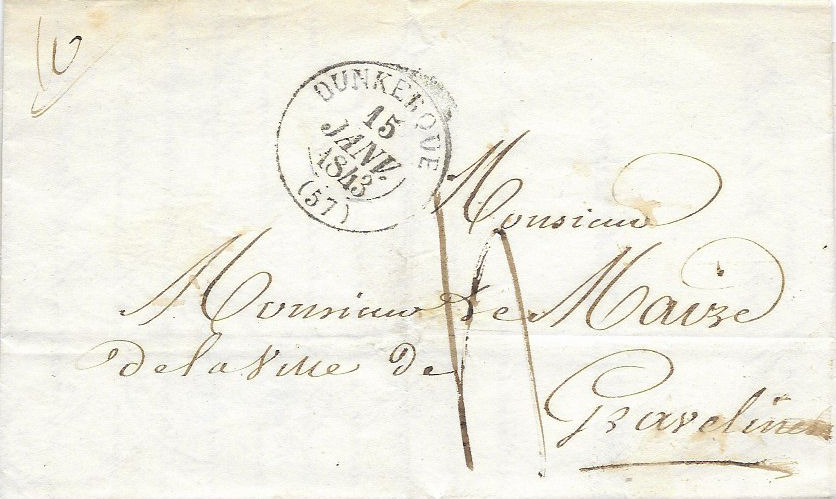 DUNKERQUE
15
JANV.
1843
(57)
Monsieur
Monsieur Le Maire
De la Ville De
Gravelines